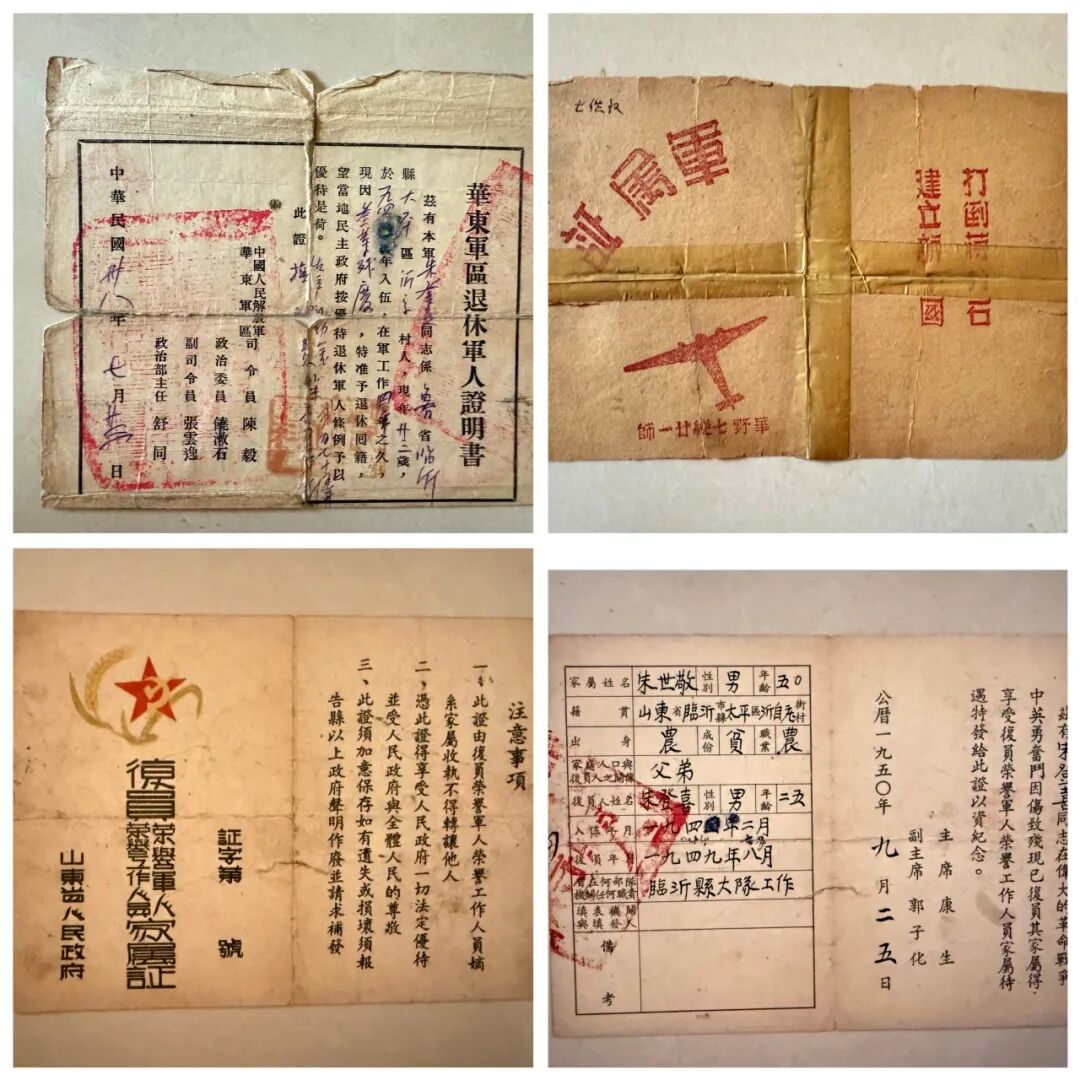 華東軍區退休軍人證明書
茲有本軍朱登喜同志係魯省臨沂
縣太平區沂自村人，現年廿二歲，
於年入伍，在軍工作四年之久，
現因，特准予退休回籍，
望當地民主政府按優待退休軍人條例予以
優待是荷。
此證
中國人民解放軍
華東軍區
司令員 陳毅
政治委員 饒漱石
副司令員 張雲逸
政治部主任 舒同
中華民國卅八年七月日
七纵奴
軍属証
打倒蔣石
建立新國
華野七縱廿一師
復員
榮譽軍人
榮譽工作人員
家属証
証字第 號
山東省人民政府
注意事項
一、此證由復員榮譽軍人榮譽工作人員嫡
系家屬收執不得轉讓他人
二、憑此證得享受人民政府一切法定優待
並受人民政府與全體人民的尊敬
三、此證須加意保存如有遺失或損壞須報
告縣以上政府聲明作廢並請求補發
家屬姓名 朱世敬 性別 男 年齡 五〇
籍貫 山東省臨沂市縣太平區沂自庄街村
出身 農 成份 貧 職業 農
家屬人口與復員人之關係 父弟
復員人姓名 朱登喜 性別 男 年齡 二五
入伍年月 一九四年二月
復員年月 一九四九年八月
曾在何部隊機關任何職責 臨沂縣大隊工作
填表機關與填發人
備考
茲有朱登喜同志在偉大的革命戰爭
中英勇奮鬥因傷致殘現已復員其家屬得
享受復員榮譽軍人榮譽工作人員家屬待
遇特發給此證以資紀念。
主席 康生
副主席 郭子化
公曆一九五〇年九月二五日